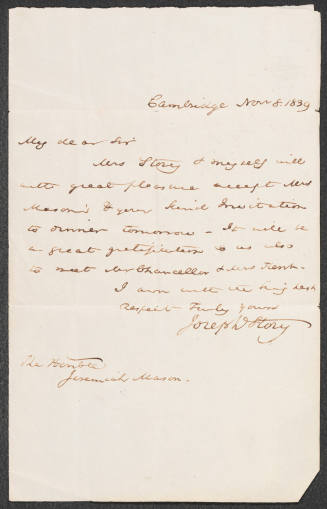 Cambridge Nov 8. 1839.
My dear Sir
Mrs Story & myself will
with great pleasure accept Mrs
Mason's & your kind Invitation
to dinner tomorrow – It will be
a great gratification to us also
to meet Mr Chancellor & Mrs Kent.
I am with the highest
respect Truly yours
Joseph Story
The Honble
Jeremiah Mason.